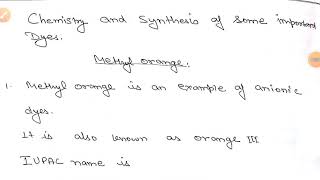 Chemistry and Synthesis of Some important
Dyes.
Methyl orange.
1. Methyl orange is an example of anionic
dyes.
It is also known as orange III
IUPAC name is